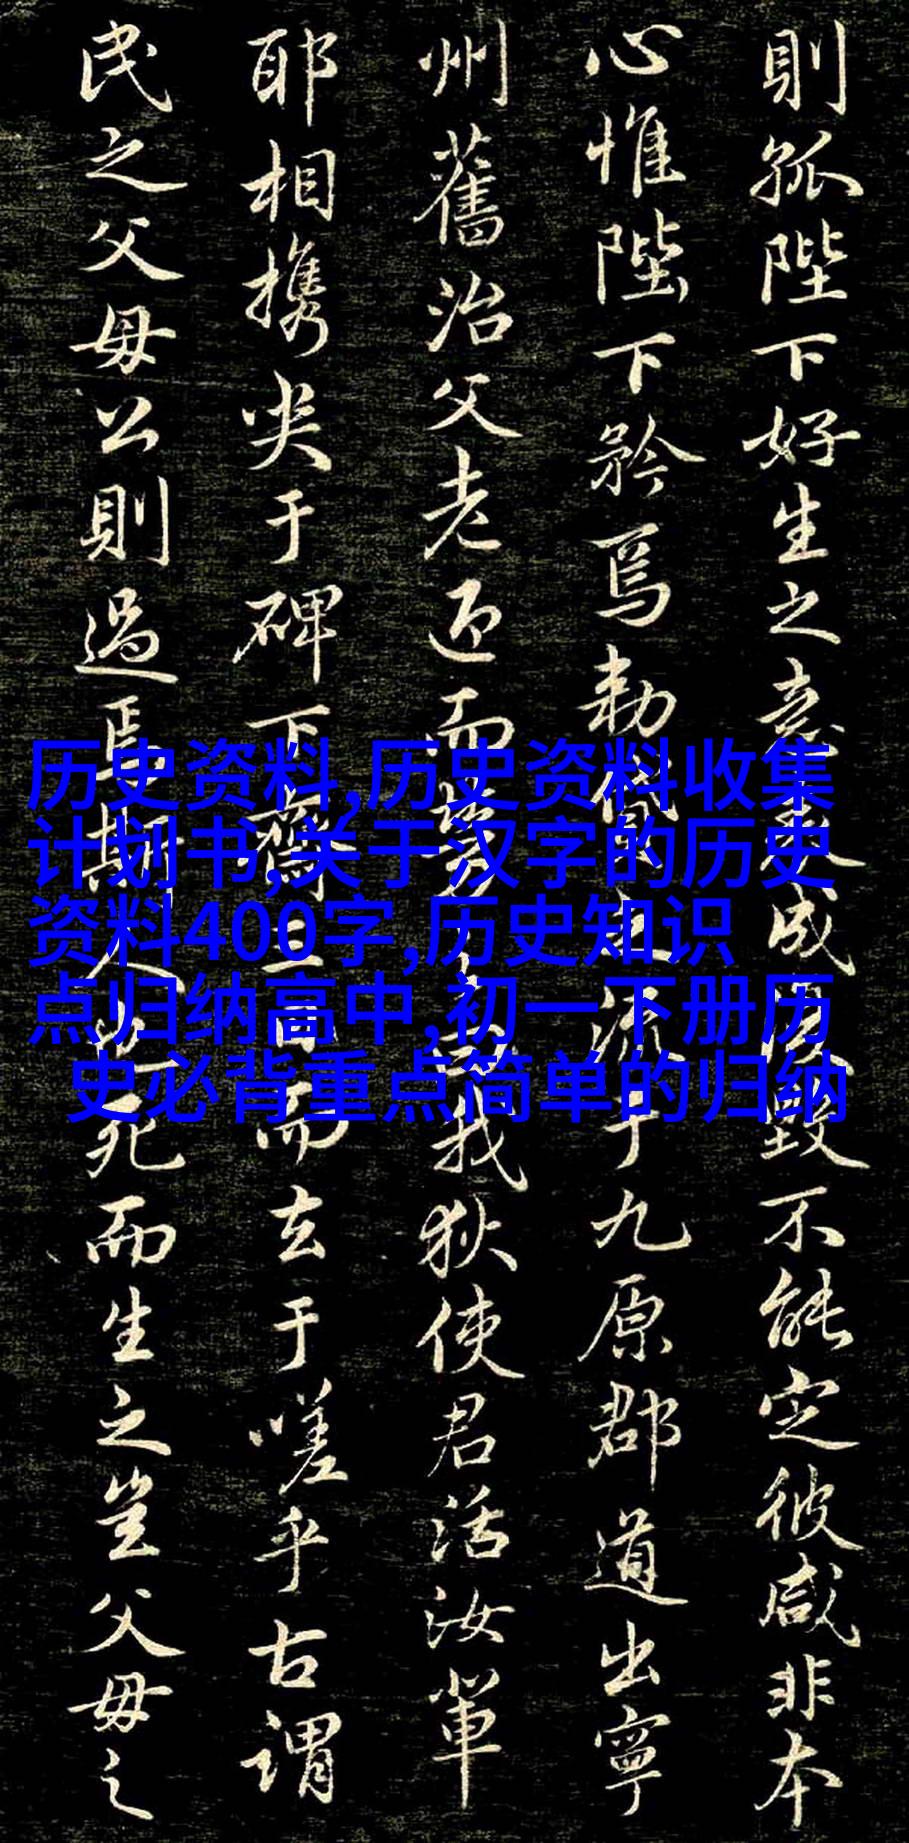 則孤陛下好生之意表成復毀不能定彼咸非本
心惟陛下矜焉勅貸流于九原郡道出寧
州舊治父老迎而勞之曰我狄使君活汝軰
耶相携哭于碑下齋三日而去于嗟乎古謂
民之父母公則過焉斯人也死而生之豈父母之
历史资料,历史资料收集
计划书,关于汉字的历史
资料400字,历史知识
点归纳高中,初一下册历
史必背重点简单的归纳